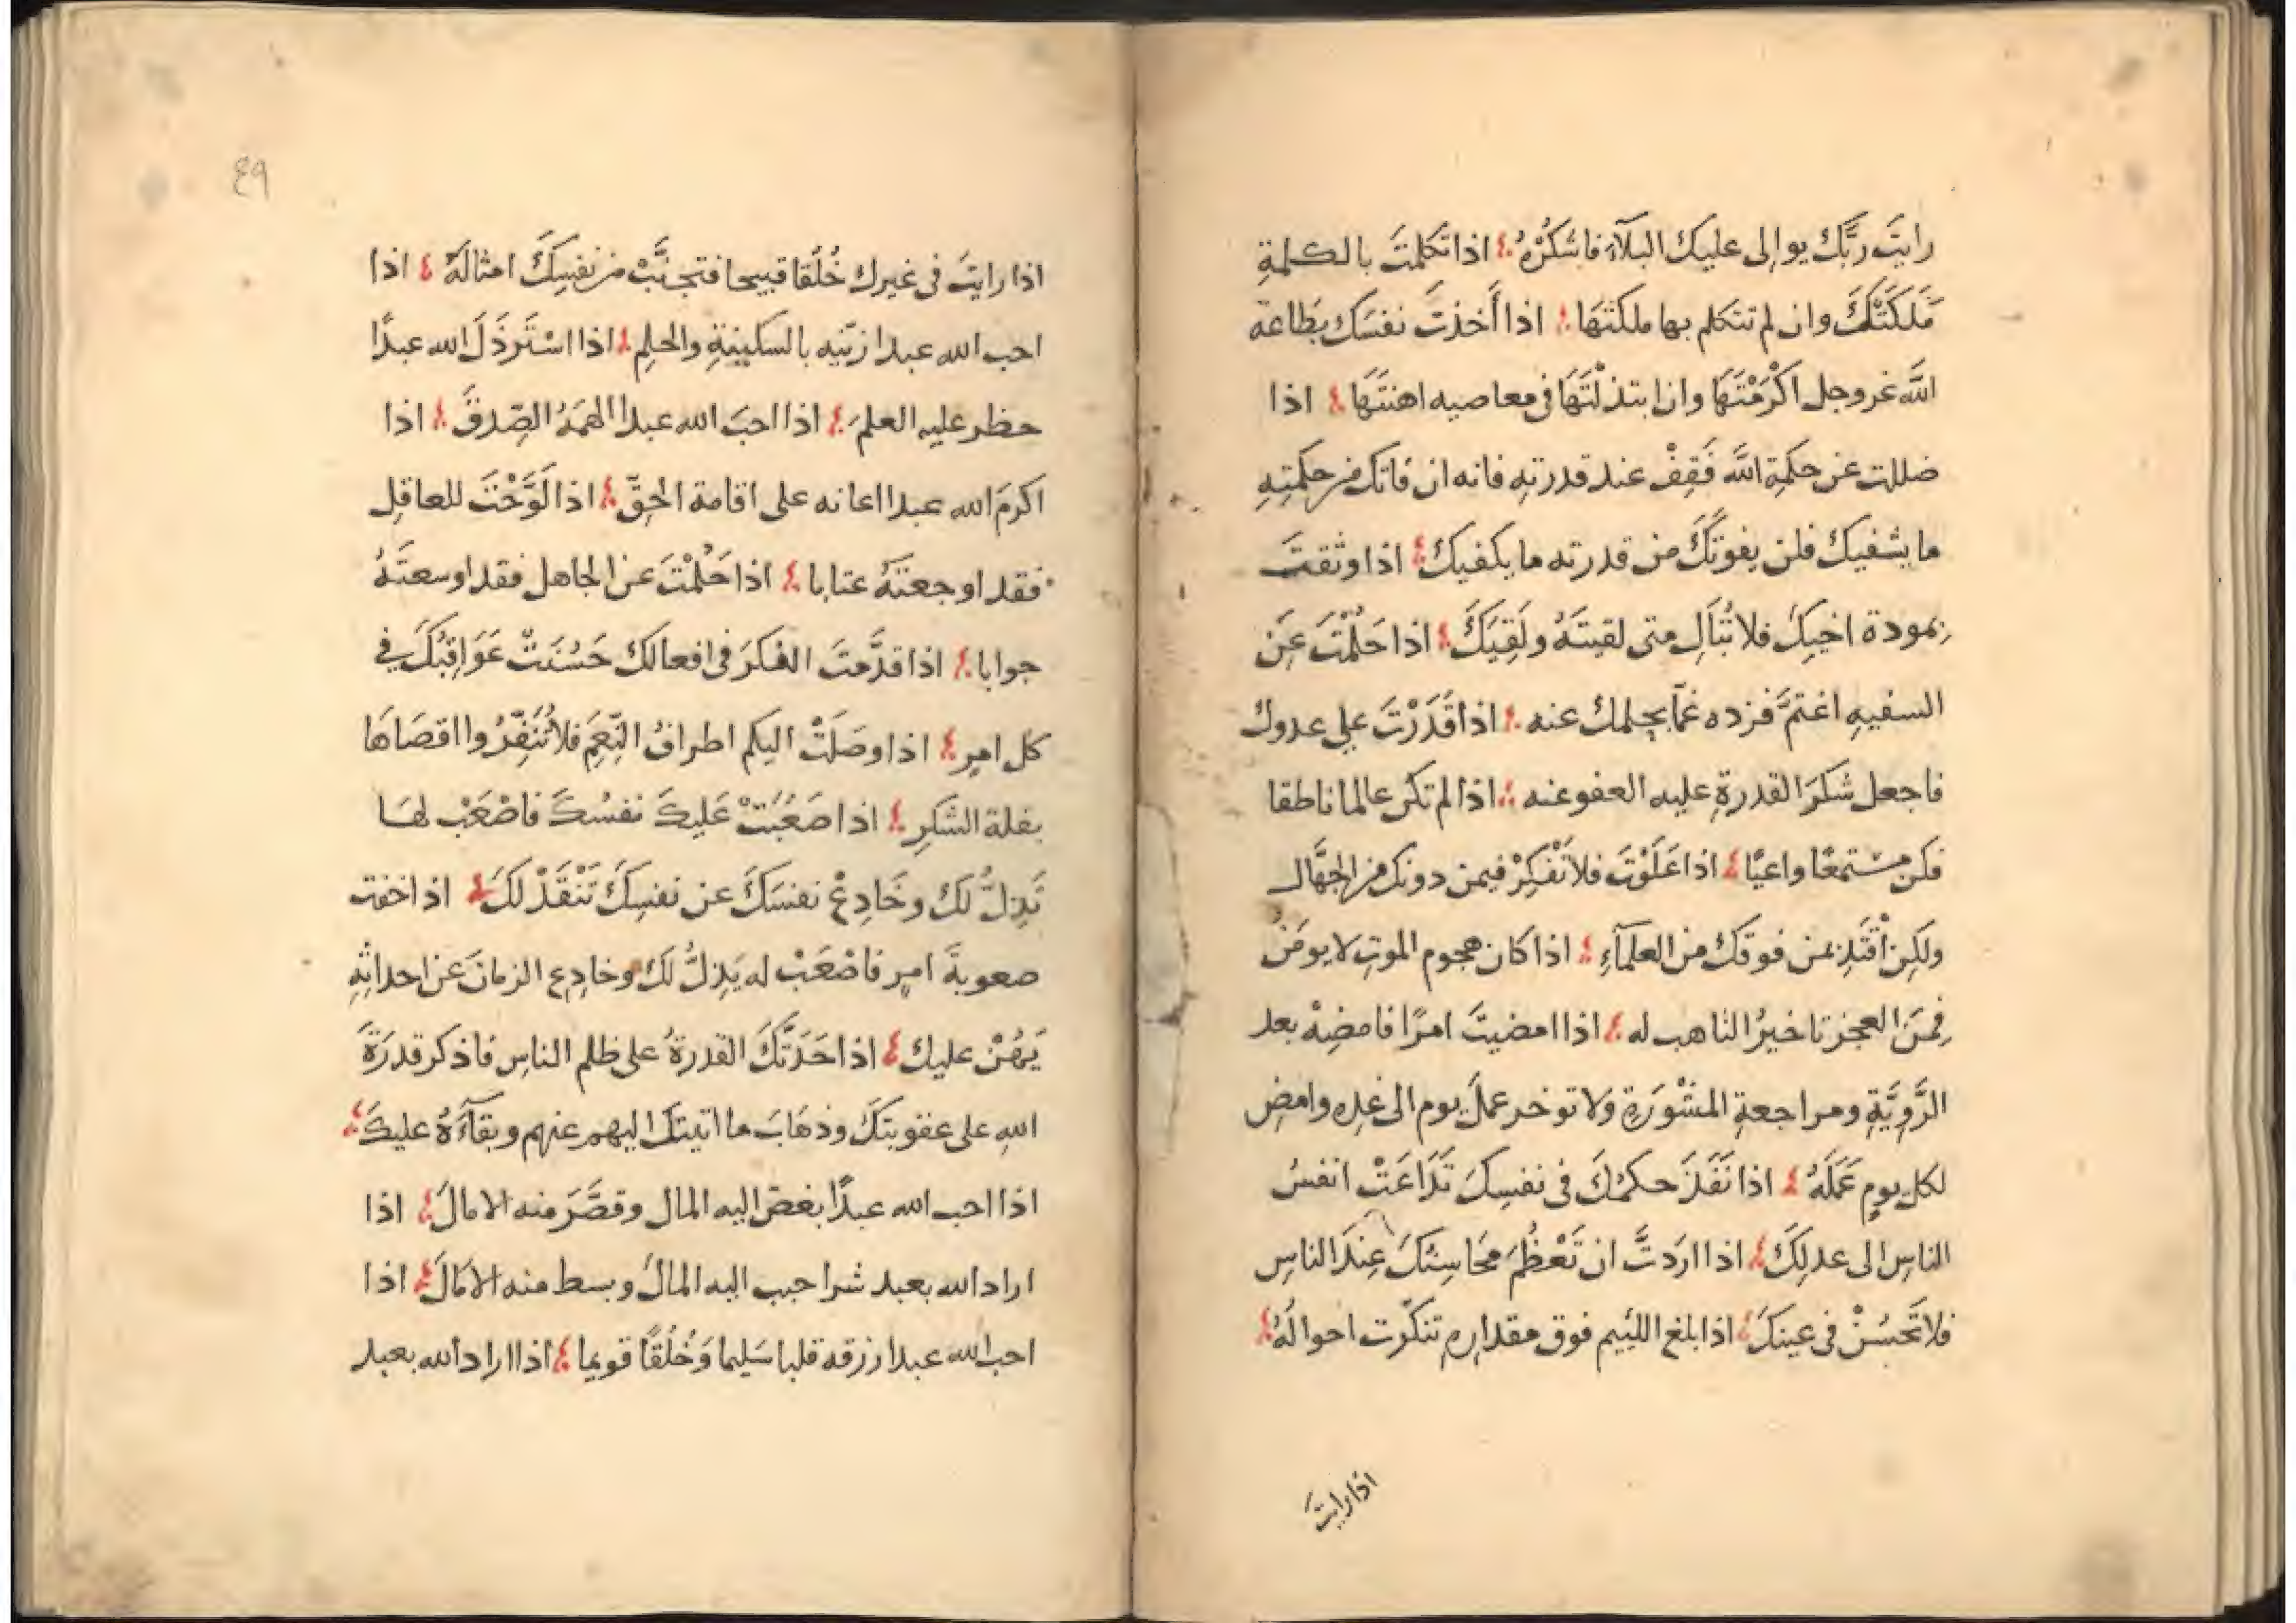 رايتَ ربَّك يوالى عليك البلآءَ فاشكُرْهُ اذا تكلمتَ بالكلمةِ
مَلَكَتْكَ وان لم تتكلم بها ملكتَهَا اذا أَخذتَ نفسَك بطاعة
اللَّه عز وجل اكْرَمْتَهَا وان ابتذلْتَهَا فى معاصيه اهنتَهَا اذا
ضللت عن حكمةِ اللَّه فَقِفْ عند قدرتهِ فانه ان فاتك من حكمتِهِ
ما يشفيك فلن يفوتَكَ من قدرته ما يكفيك اذا وثقتَ
بمودة اخيكَ فلا تُبَالِ متى لقيتَهُ ولَقِيَكَ اذا حَلُمْتَ عَنِ
السفيهِ اغتمَّ فزده غمّاً بحلمك عنه اذا قَدَرْتَ على عدوك
فاجعل شكرَ القدرةِ عليه العفو عنه اذا لم تكن عالما ناطقا
فكن مستمعًا واعيًا اذا عَلَوْتَ فلا تَفْكِرْ فيمن دونك من الجهَّال
ولكِنْ اقْتَدِ بمن فوقك من العلمآءِ اذا كان هجوم الموتِ لا يومَنُ
فمِنَ العجز تاخيرُ التاهب له اذا امضيتَ امرًا فامضِهْ بعد
الرَّوِيَّةِ ومراجعةِ المشْوَرَةِ ولا توخر عملَ يوم الى غدِهِ وامضِ
لكل يومٍ عَمَلَهُ اذا نَفَذَ حكمُكَ فى نفسِكَ تَدَاعَتْ انفسُ
الناسِ الى عدلِكَ اذا ارَدتَّ ان تَعْظُمَ مَحَاسِنُكَ عِنْدَ الناسِ
فلا تَحسُنْ فى عينكَ اذا بلغ اللئيم فوق مقدارهِ تنكّرت احوالُهُ
اذا رايتَ
٤٩
اذا رايتَ فى غيرك خُلُقا قبيحا فتجنَّبْ من نفسِكَ امثالَهُ اذا
احب الله عبدا زيّنه بالسكينةِ والحلِمِ اذا اسْتَرذَلَ الله عبدًا
حظر عليه العلمَ اذا احبَ الله عبدا الهمَهُ الصِّدقَ اذا
اكرمَ الله عبدا اعانه على اقامة الحقّ اذا لَوَّحْتَ للعاقِل
فقد اوجعتَهُ عتابا اذا حَلُمْتَ عن الجاهل فقد اوسعتَهُ
جوابا اذا قدَّمتَ الفكرَ فى افعالك حَسُنَتْ عَوَاقِبُكَ فى
كل امرٍ اذا وصَلَتْ اليكم اطرافُ النِّعَمِ فلا تُنَفِّرُوا اقصَاهَا
بقلة الشكرِ اذا صَعُبَتْ عَليكَ نفسُكَ فاصْعَبْ لهَا
تَذِلُّ لك وخَادِعْ نفسَكَ عن نفسِكَ تَنْقَدْ لَكَ اذا خفت
صعوبةَ امرٍ فاصْعَبْ له يَذِلُّ لك وخادِع الزمانَ عن احداثِهِ
يَهُنْ عليك اذا حَدَتْكَ القدرةُ على ظلم الناسِ فاذكر قدرَةَ
اللهِ على عقوبتكَ وذهَابَ ما اتيتَ اليهم عنهم وبقآءَهُ عليكَ
اذا احب الله عبدًا بغضَ اليه المال وقصَّرَ منه الامالَ اذا
اراد الله بعبد شرا حبب اليه المالَ وبسط منه الامَالَ اذا
احب الله عبدا رزقه قلبا سَليما وَخُلُقًا قويما اذا اراد الله بعبد